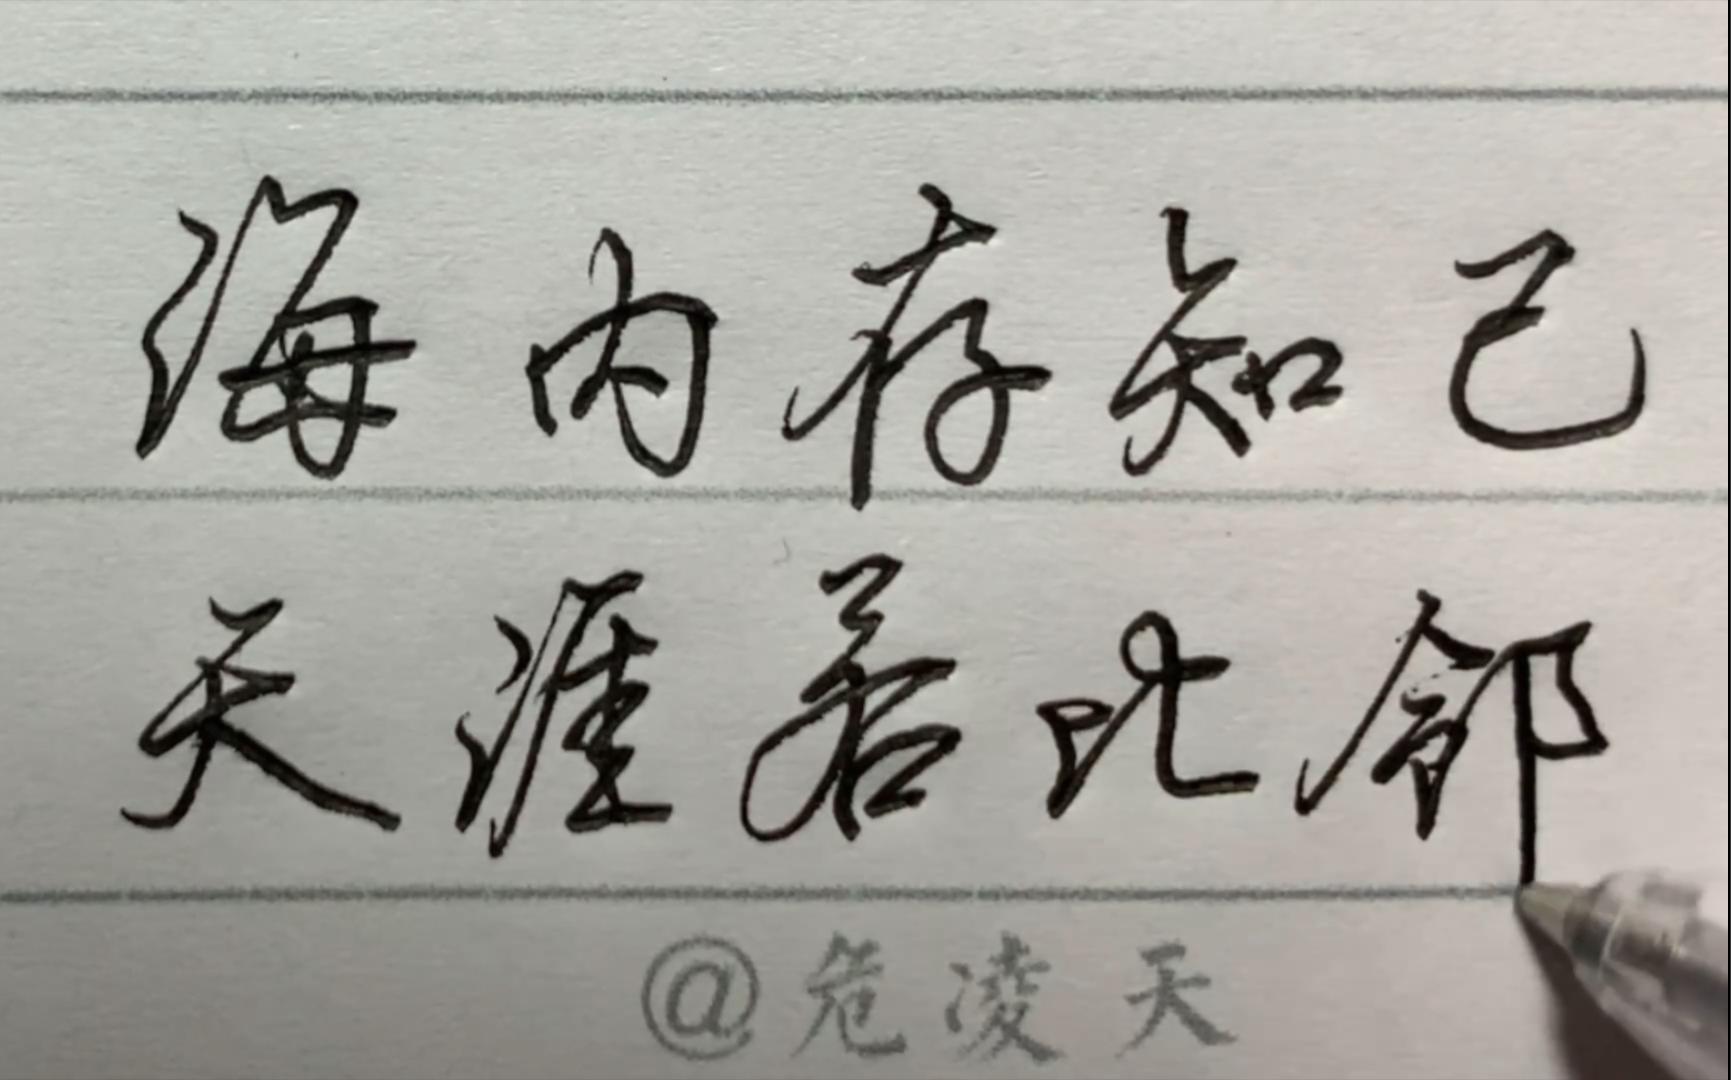 海内存知己
天涯若比邻
@危凌天